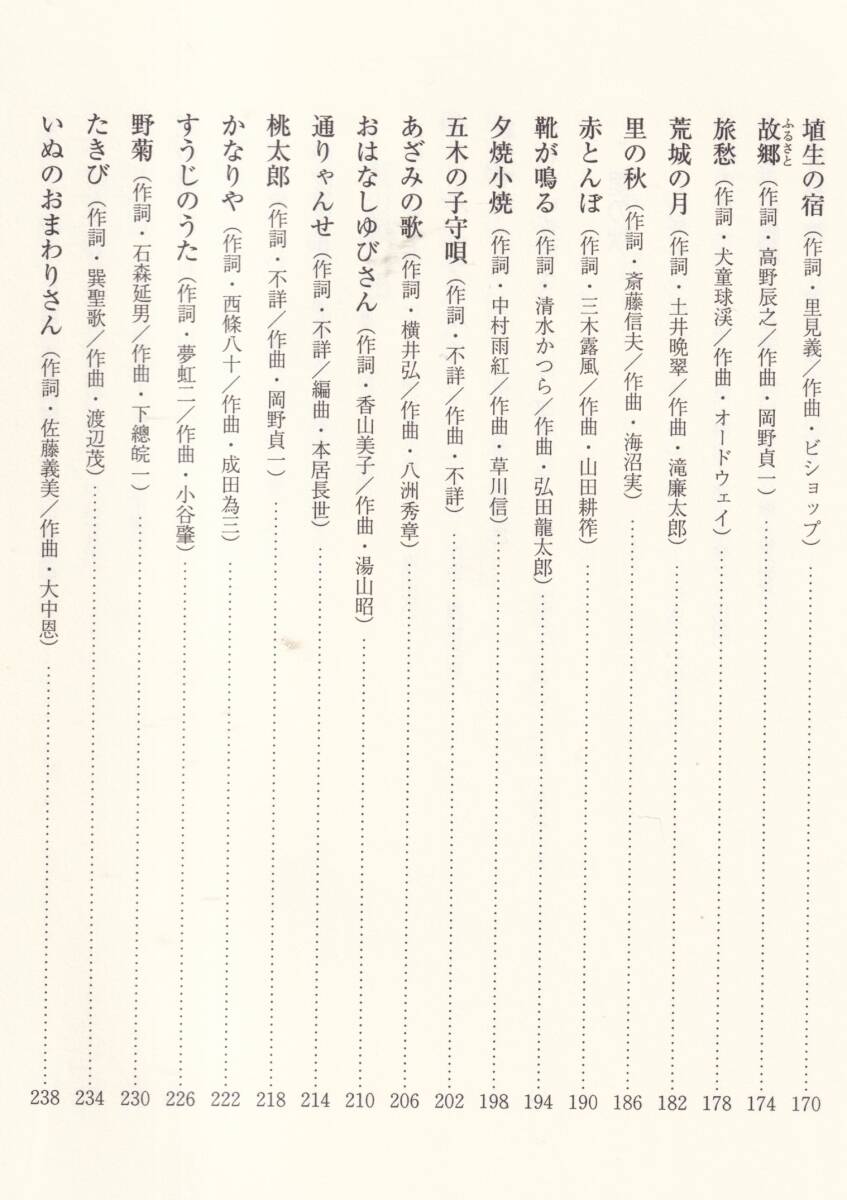 埴生の宿（作詞・里見義／作曲・ビショップ）…………170
故郷（ふるさと）（作詞・高野辰之／作曲・岡野貞一）…………174
旅愁（作詞・犬童球渓／作曲・オードウェイ）…………178
荒城の月（作詞・土井晩翠／作曲・滝廉太郎）…………182
里の秋（作詞・斎藤信夫／作曲・海沼実）…………186
赤とんぼ（作詞・三木露風／作曲・山田耕筰）…………190
靴が鳴る（作詞・清水かつら／作曲・弘田龍太郎）…………194
夕焼小焼（作詞・中村雨紅／作曲・草川信）…………198
五木の子守唄（作詞・不詳／作曲・不詳）…………202
あざみの歌（作詞・横井弘／作曲・八洲秀章）…………206
おはなしゆびさん（作詞・香山美子／作曲・湯山昭）…………210
通りゃんせ（作詞・不詳／編曲・本居長世）…………214
桃太郎（作詞・不詳／作曲・岡野貞一）…………218
かなりや（作詞・西條八十／作曲・成田為三）…………222
すうじのうた（作詞・夢虹二／作曲・小谷肇）…………226
野菊（作詞・石森延男／作曲・下總皖一）…………230
たきび（作詞・巽聖歌／作曲・渡辺茂）…………234
いぬのおまわりさん（作詞・佐藤義美／作曲・大中恩）…………238